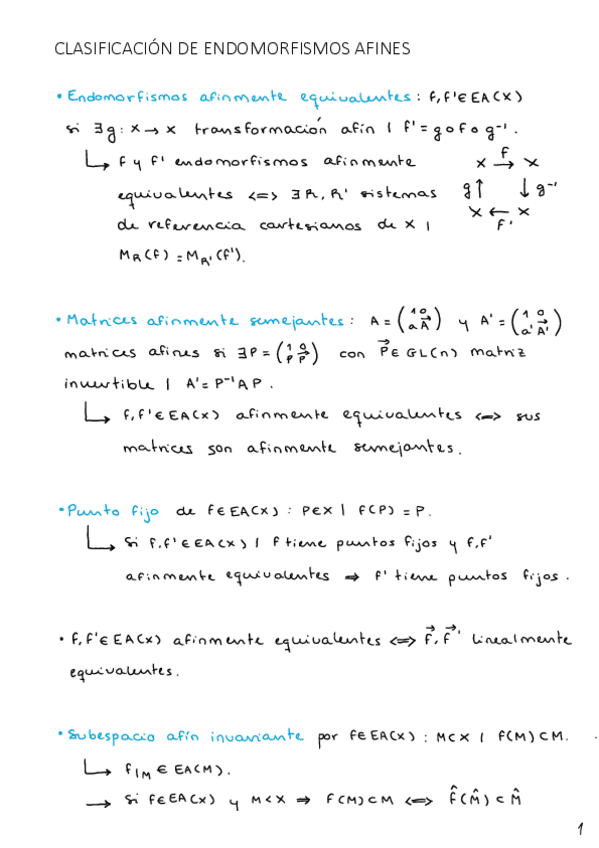 CLASIFICACIÓN DE ENDOMORFISMOS AFINES
• Endomorfismos afinmente equivalentes: f, f' ∈ EA(X)
si ∃ g: X → X transformación afín | f' = g o f o g⁻¹.
↳ f y f' endomorfismos afinmente
equivalentes <=> ∃ R, R' sistemas
de referencia cartesianos de X |
M_R(f) = M_R'(f').
X →^f X
g↑ ↓g⁻¹
X ← X
f'
• Matrices afinmente semejantes: A = (1 0 / a A⃗) y A' = (1 0 / a' A⃗')
matrices afines si ∃ P = (1 0 / p P⃗) con P⃗ ∈ GL(n) matriz
invertible | A' = P⁻¹ A P.
↳ f, f' ∈ EA(X) afinmente equivalentes <=> sus
matrices son afinmente semejantes.
• Punto fijo de f ∈ EA(X): P ∈ X | f(P) = P.
↳ Si f, f' ∈ EA(X) | f tiene puntos fijos y f, f'
afinmente equivalentes ⇒ f' tiene puntos fijos.
• f, f' ∈ EA(X) afinmente equivalentes <=> f⃗, f⃗' linealmente
equivalentes.
• Subespacio afín invariante por f ∈ EA(X): M ⊂ X | f(M) ⊂ M.
↳ f|M ∈ EA(M).
→ Si f ∈ EA(X) y M ⊂ X ⇒ f(M) ⊂ M <=> f̂(M̂) ⊂ M̂
1